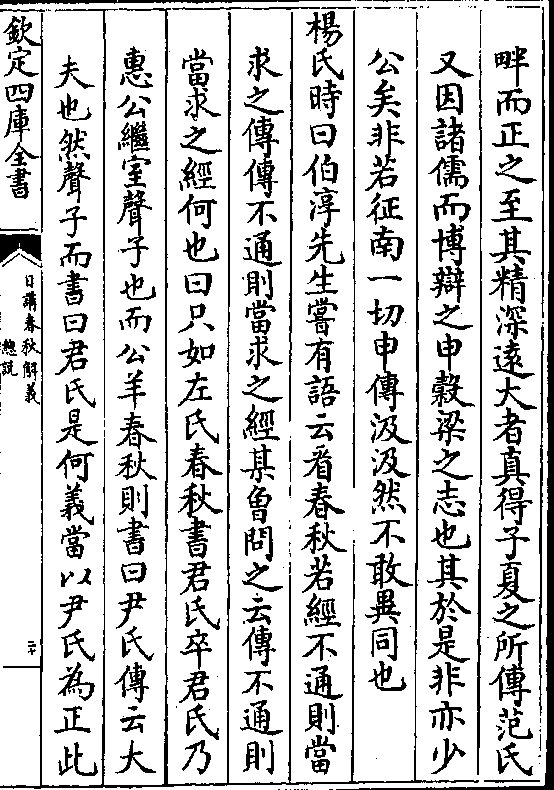 畔而正之至其精深遠大者真得子夏之所傳范氏
又因諸儒而博辯之申穀梁之志也其於是非亦少
公矣非若征南一切申傳汲汲然不敢異同也
楊氏時曰伯淳先生嘗有語云看春秋若經不通則當
求之傳傳不通則當求之經某曾問之云傳不通則
當求之經何也曰只如左氏春秋書君氏卒君氏乃
惠公繼室聲子也而公羊春秋則書曰尹氏傳云大
夫也然聲子而書曰君氏是何義當以尹氏為正此
欽定四庫全書
日講春秋解義
總說